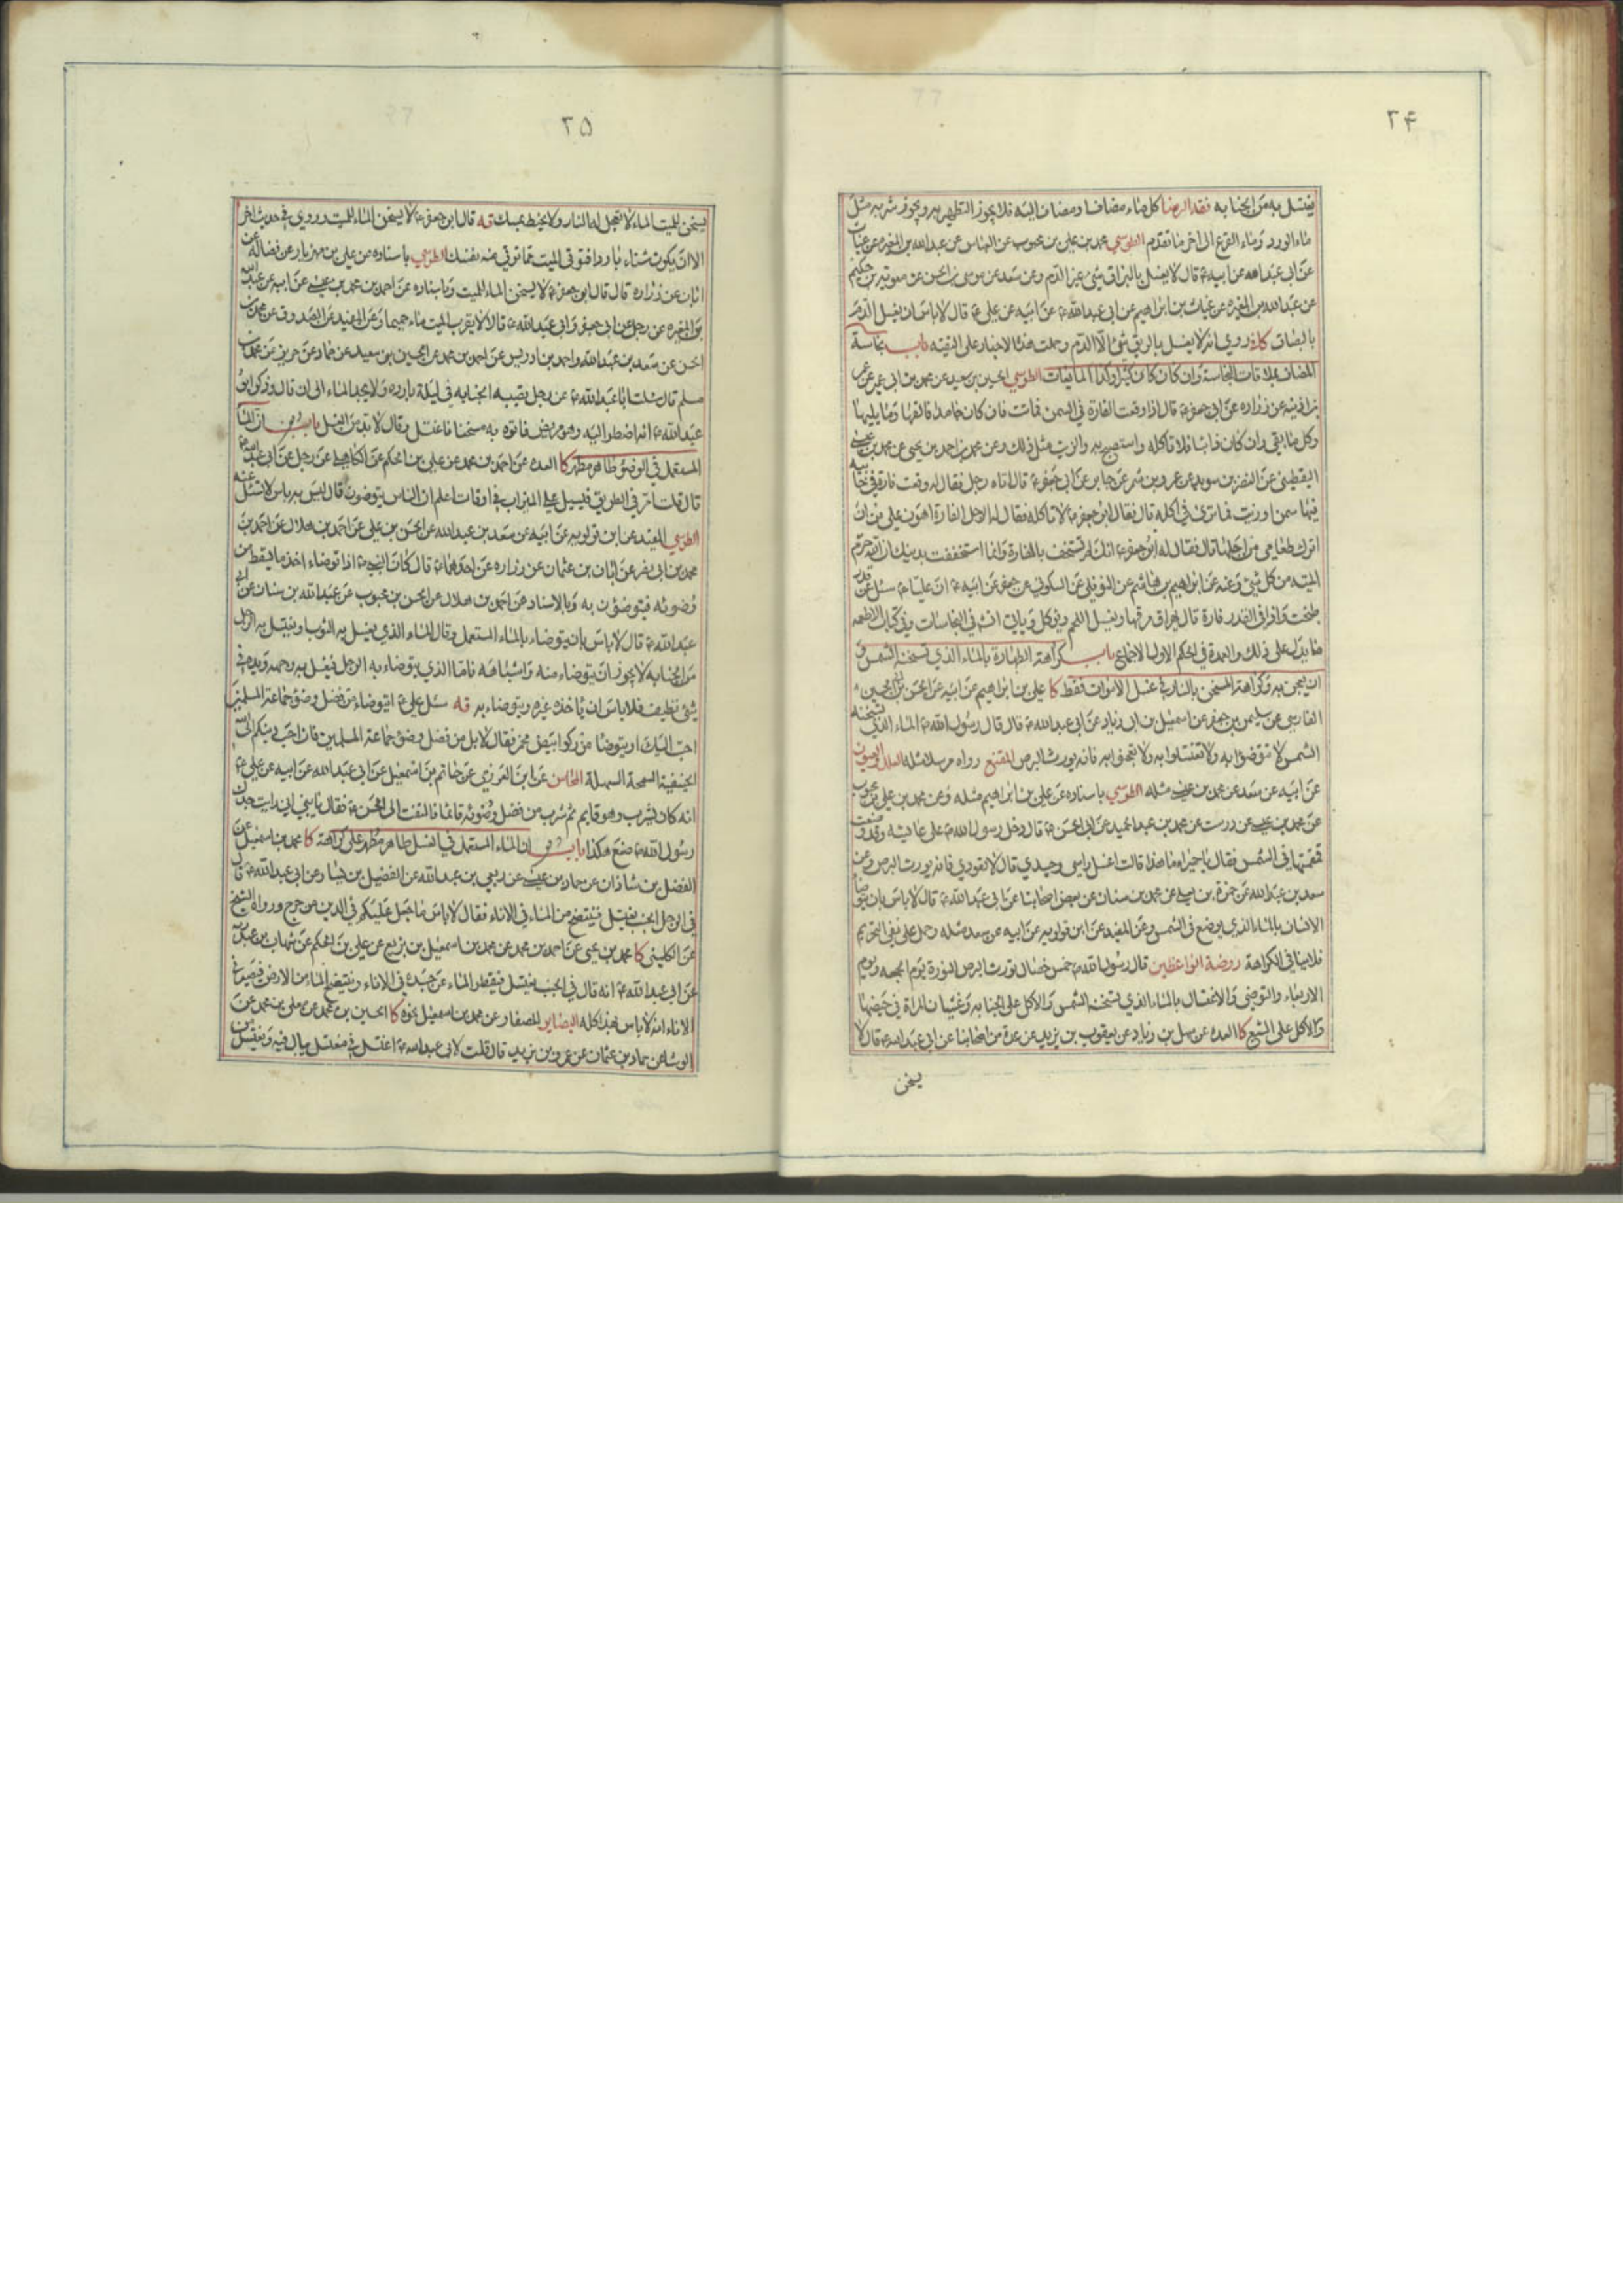 ٢۴
يغتسل به من الجنابة فقه الرضا كل ماء مضاف او مضاف اليه فلا يجوز التطهير به ويجوز شربه مثل
ماء الورد وماء القرع الى اخر ما تقدم الطوسي محمد بن علي بن محبوب عن العباس عن عبدالله بن المغيره عن غياث
عن ابي عبدالله عن ابيه ع قال لا يغسل بالبزاق شيء غير الدم وعن سعد عن موسى بن الحسن عن معوية بن حكيم
عن عبدالله بن المغيره عن غياث بن ابراهيم عن ابي عبدالله ع عن ابيه عن علي ع قال لا باس ان يغسل الدم
بالبصاق كا روي انه لا يغسل بالريق شيء الا الدم وحملت هذه الاخبار على التقية باب نجاسة
المضاف بملاقات النجاسة وان كان كثيرا وكذا المايعات الطوسي الحسين بن سعيد عن محمد بن ابي عمير عن عمر
بن اذينه عن زراره عن ابي جعفر ع قال اذا وقعت الفارة في السمن فماتت فان كان جامدا فالقها وما يليها
وكل ما بقي وان كان ذائبا فلا تاكله واستصبح به والزيت مثل ذلك وعن محمد بن احمد بن يحيى عن محمد بن عيسى
اليقطيني عن النضر بن سويد عن عمرو بن شمر عن جابر عن ابي جعفر ع قال اتاه رجل فقال له وقعت فارة في خابية
فيها سمن او زيت فما ترى في اكله قال فقال ابو جعفر ع لا تاكله فقال له الرجل الفارة اهون علي من ان
اترك طعامي من اجلها قال فقال له ابو جعفر ع انك لم تستخف بالفارة وانما استخففت بدينك ان الله حرم
الميتة من كل شيء وعنه عن ابراهيم بن هاشم عن النوفلي عن السكوني عن جعفر عن ابيه ع ان عليا ع سئل عن قدر
طبخت واذا في القدر فارة قال يهراق مرقها ويغسل اللحم ويؤكل وياتي انشه في النجاسات وفي كتاب الاطعمه
ما يدل على ذلك والعمدة في الحكم الاول الاجماع باب كراهة الطهارة بالماء الذي تسخنه الشمس و
ان يعجن به وكراهة المسخن بالنار في غسل الاموات فقط كا علي بن ابراهيم عن ابيه عن الحسن بن ابي الحسين
الفارسي عن سليمن بن جعفر عن اسمعيل بن ابي زياد عن ابي عبدالله ع قال قال رسول الله ص الماء الذي تسخنه
الشمس لا تتوضؤا به ولا تغتسلوا به ولا تعجنوا به فانه يورث البرص المقنع رواه مرسلا مثله العلل والعيون
عن ابيه عن سعد عن محمد بن عيسى مثله الطوسي باسناده عن علي بن ابراهيم مثله وعن محمد بن علي بن محبوب
عن محمد بن عيسى عن درست عن محمد بن عبدالحميد عن ابي الحسن ع قال دخل رسول الله ص على عايشه وقد وضعت
قمقمتها في الشمس فقال يا حميراء ما هذا قالت اغسل راسي وجسدي قال لا تعودي فانه يورث البرص وعن
سعد بن عبدالله عن حمزة بن يعلى عن محمد بن سنان عن بعض اصحابنا عن ابي عبدالله ع قال لا باس بان يتوضأ
الانسان بالماء الذي يوضع في الشمس وعن المفيد عن ابن قولويه عن ابيه عن سعد مثله وحمل على نفي التحريم
فلا ينافي الكراهة روضة الواعظين قال رسول الله ص خمس خصال تورث البرص النورة يوم الجمعه ويوم
الاربعاء والتوضي والاغتسال بالماء الذي تسخنه الشمس والاكل على الجنابه وغشيان المراة في حيضها
والاكل على الشبع كا العده عن سهل بن زياد عن يعقوب بن يزيد عن عدة من اصحابنا عن ابي عبدالله ع قال لا
يسخن
٢۵
يسخن للميت الماء لا تعجل له النار ولا يحنط بمسك قه قال ابو جعفر ع لا يسخن الماء للميت وروي في حديث اخر
الا ان يكون شتاء باردا فتوقي الميت مما توقي منه نفسك الطوسي باسناده عن علي بن مهزيار عن فضاله عن
ابان عن زراره قال قال ابو جعفر ع لا يسخن الماء للميت وباسناده عن احمد بن محمد بن عيسى عن ابيه عن عبدالله
بن المغيره عن رجل عن ابي جعفر وابي عبدالله ع قالا لا يقرب الميت ماء حميما وعن المفيد عن الصدوق عن محمد بن
الحسن عن سعد بن عبدالله واحمد بن ادريس عن احمد بن محمد عن الحسين بن سعيد عن حماد عن حريز عن محمد بن
مسلم قال سئلت ابا عبدالله ع عن رجل تصيبه الجنابه في ليلة بارده ولا يجد الماء الى ان قال وذكر ابو
عبدالله ع انه اضطر اليه وهو مريض فاتوه به مسخنا فاغتسل وقال لا بد من الغسل باب ان الماء
المستعمل في الوضؤ طاهر مطهر كا العده عن احمد بن محمد عن علي بن الحكم عن الكاهلي عن رجل عن ابي عبدالله ع
قال قلت امر في الطريق فيسيل علي الميزاب في اوقات اعلم ان الناس يتوضون قال ليس به باس لا تسئل عنه
الطوسي المفيد عن ابن قولويه عن ابيه عن سعد بن عبدالله عن الحسن بن علي عن احمد بن هلال عن احمد بن
محمد بن ابي نصر عن ابان بن عثمان عن زراره عن احدهما ع قال كان النبي ص اذا توضاء اخذ ما يسقط من
وضوئه فيتوضؤن به وبالاسناد عن احمد بن هلال عن الحسن بن محبوب عن عبدالله بن سنان عن ابي
عبدالله ع قال لا باس بان يتوضاء بالماء المستعمل وقال الماء الذي يغسل به الثوب او يغتسل به الرجل
من الجنابه لا يجوز ان يتوضاء منه واشباهه فاما الذي يتوضاء به الرجل فيغسل به وجهه ويده في
شيء نظيف فلا باس ان ياخذه غيره ويتوضاء به قه سئل علي ع ايتوضاء من فضل وضؤ جماعة المسلمين
احب اليك او يتوضا من ركو ابيض مخمر فقال لا بل من فضل وضؤ جماعة المسلمين فان احب دينكم الى الله
الحنيفية السمحة السهلة المحاسن عن ابن العرزمي عن حاتم بن اسمعيل عن ابي عبدالله عن ابيه عن علي ع
انه كان يشرب وهو قايم ثم شرب من فضل وضوئه قائما فالتفت الى الحسن ع فقال يا بني اني رايت جدك
رسول الله ص صنع هكذا باب ان الماء المستعمل في الغسل طاهر مطهر على كراهة كا محمد بن اسمعيل عن
الفضل بن شاذان عن حماد بن عيسى عن ربعي بن عبدالله عن الفضيل بن يسار عن ابي عبدالله ع قال
في الرجل الجنب يغتسل فينتضح من الماء في الاناء فقال لا باس ما جعل عليكم في الدين من حرج ورواه الشيخ
عن الكليني كا محمد بن يحيى عن احمد بن محمد عن محمد بن اسمعيل بن بزيع عن علي بن الحكم عن شهاب بن عبد ربه
عن ابي عبدالله ع انه قال في الجنب يغتسل فيقطر الماء عن جسده في الاناء وينتضح الماء من الارض فيصير في
الاناء انه لا باس بهذا كله البصاير للصفار عن محمد بن اسمعيل نحوه كا الحسين بن محمد عن معلى بن محمد عن
الوشا عن حماد بن عثمان عن عمر بن يزيد قال قلت لابي عبدالله ع اغتسل في مغتسل يبال فيه ويغتسل من